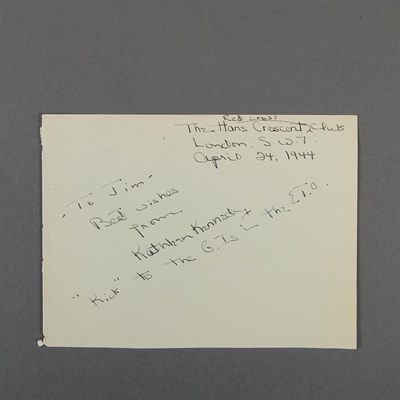 Red Cross
The Hans Crescent Club
London. S.W.7.
April 24, 1944
- To Jim -
Best wishes
from
Kathleen Kennedy
"Kick" to the G.Is in the E.T.O.